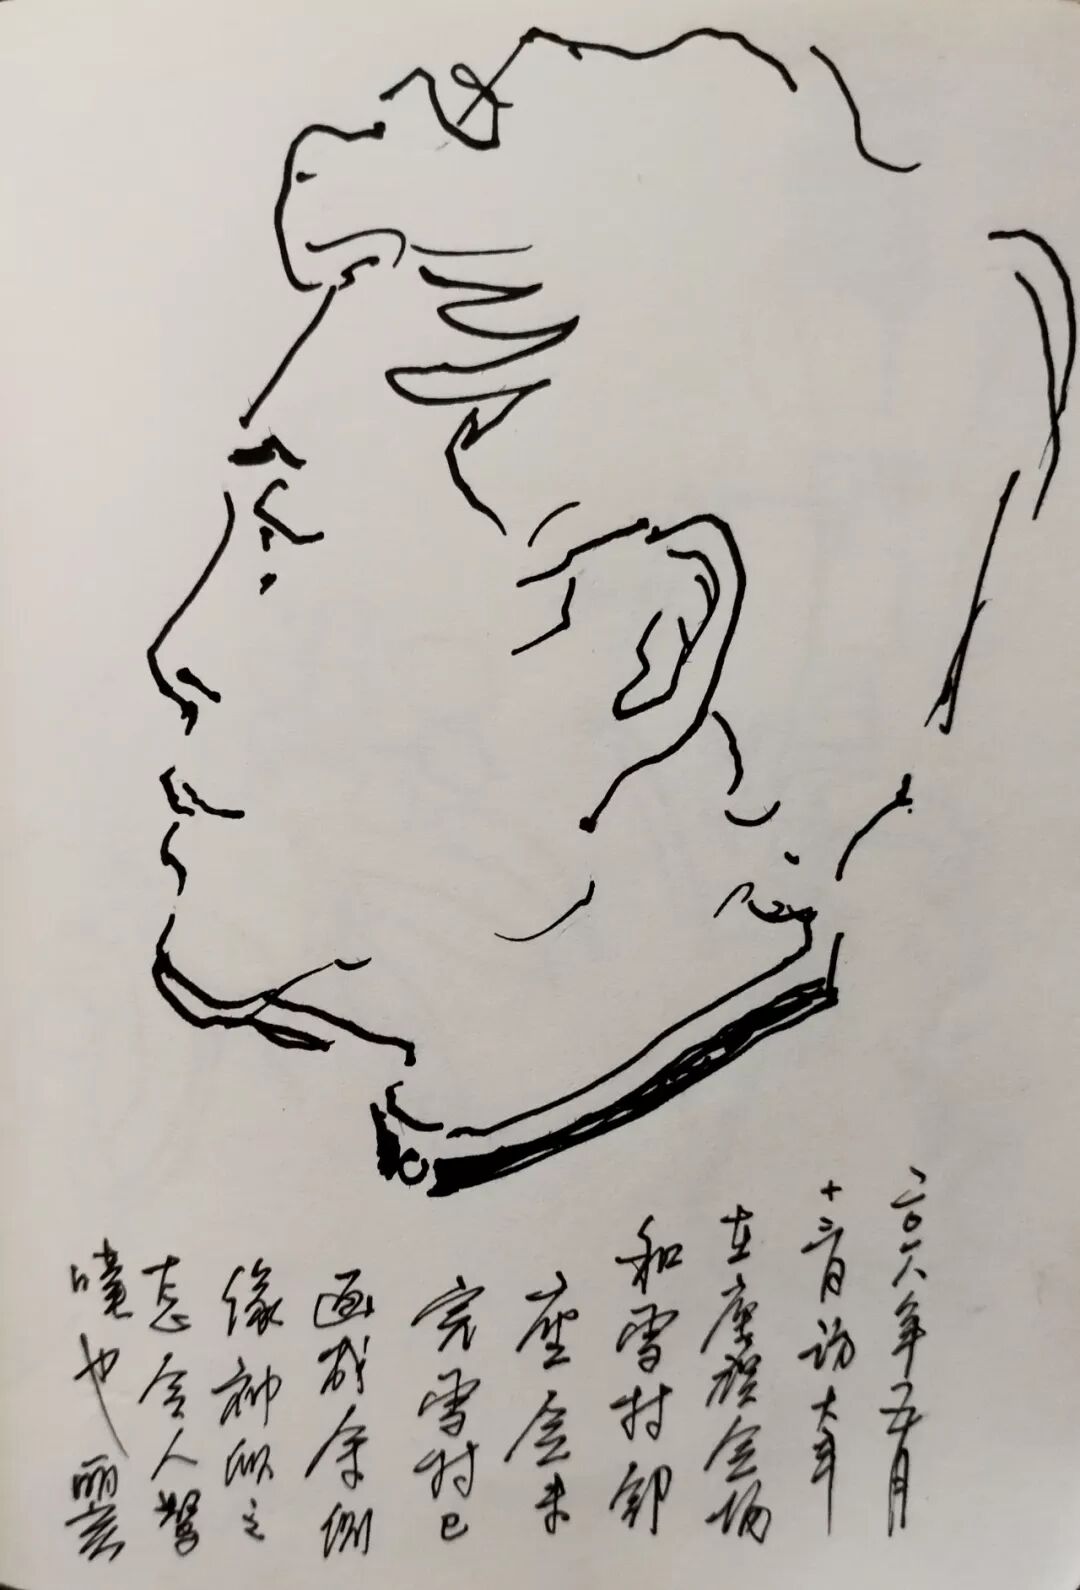 二〇一八年五月
十三日访大年
在座谈会场
和雪村邻
座会未
完雪村已
画成余侧
像神似之
态令人惊
叹也